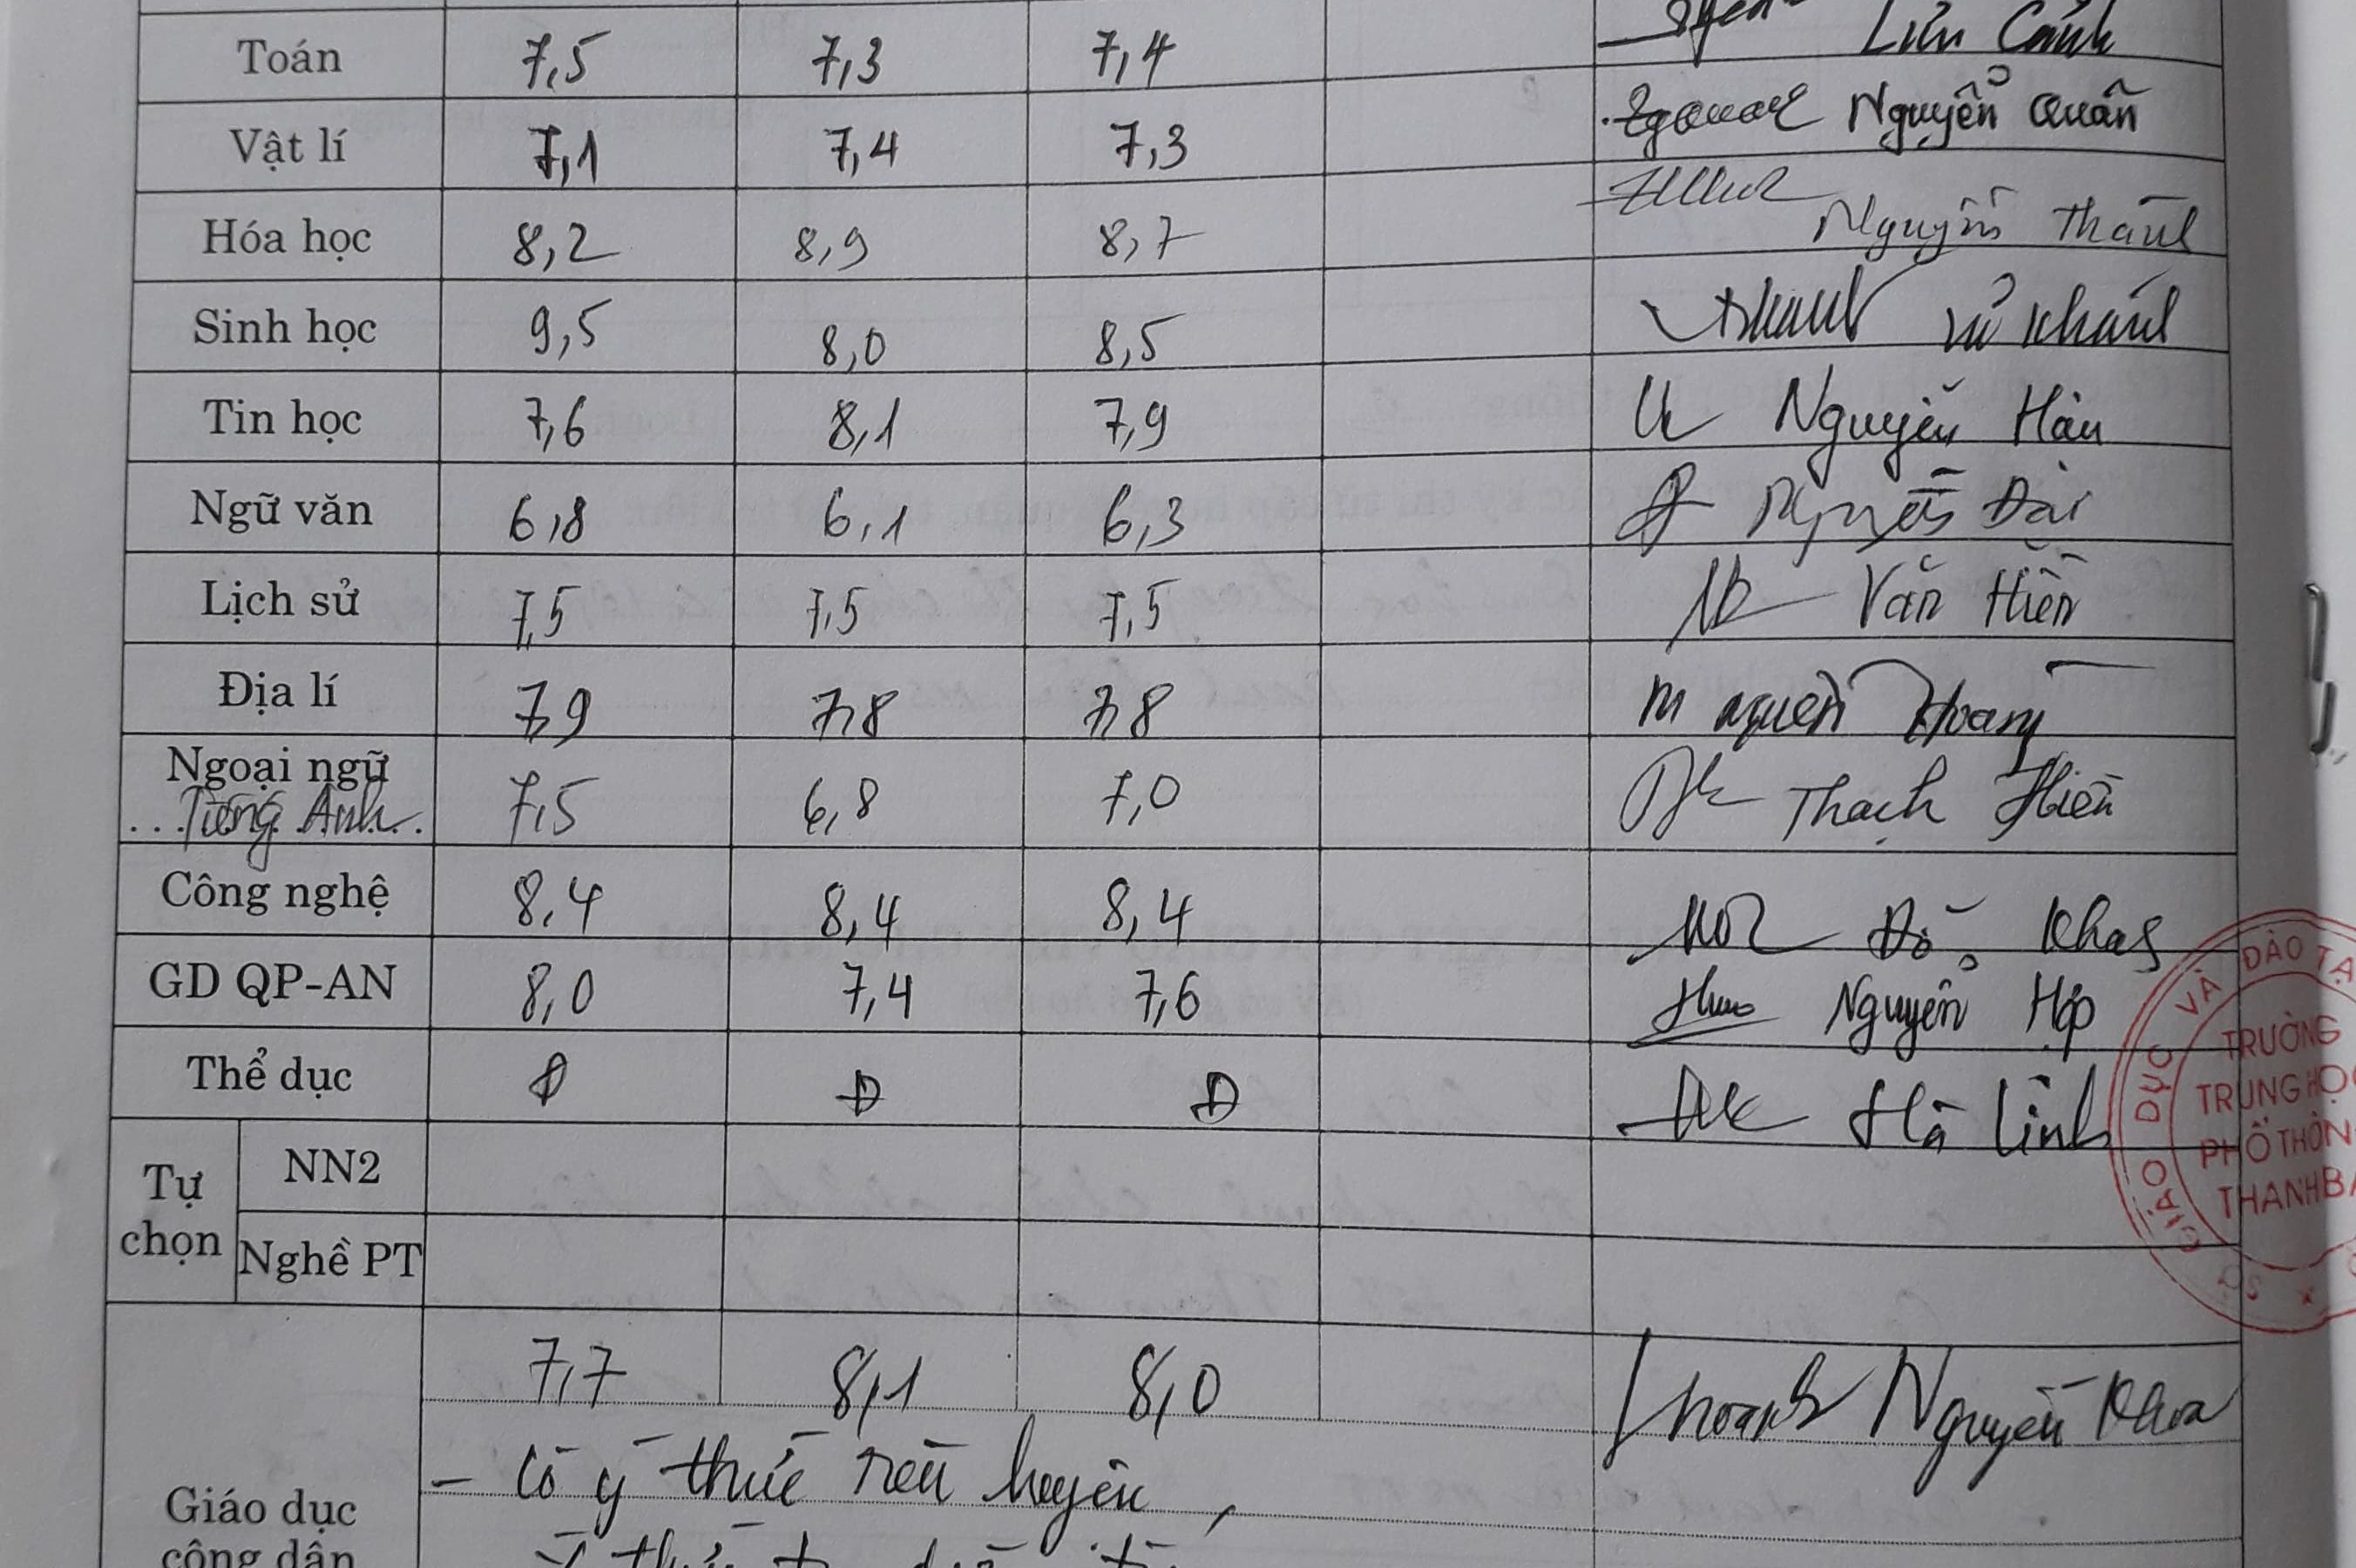 Toán 7,5 7,3 7,4 Liên Cảnh
Vật lí 7,1 7,4 7,3 Nguyễn Quân
Hóa học 8,2 8,9 8,7 Nguyễn Thành
Sinh học 9,5 8,0 8,5 Khánh
Tin học 7,6 8,1 7,9 Nguyễn
Ngữ văn 6,8 6,1 6,3 Nguyễn
Lịch sử 7,5 7,5 7,5 Văn Hiền
Địa lí 7,9 7,8 7,8 Hoàng
Ngoại ngữ
Tiếng Anh 7,5 6,8 7,0 Thạch Hiền
Công nghệ 8,4 8,4 8,4 Đỗ
GD QP-AN 8,0 7,4 7,6 Nguyễn Hợp
Thể dục Đ Đ Đ Hà Linh
Tự chọn
NN2
Nghề PT
7,7 8,1 8,0 Nguyễn
Giáo dục công dân
- Có ý thức rèn luyện,
GIÁO DỤC VÀ ĐÀO TẠ
TRƯỜNG
TRUNG HỌC
PHỔ THÔN
THANH BA